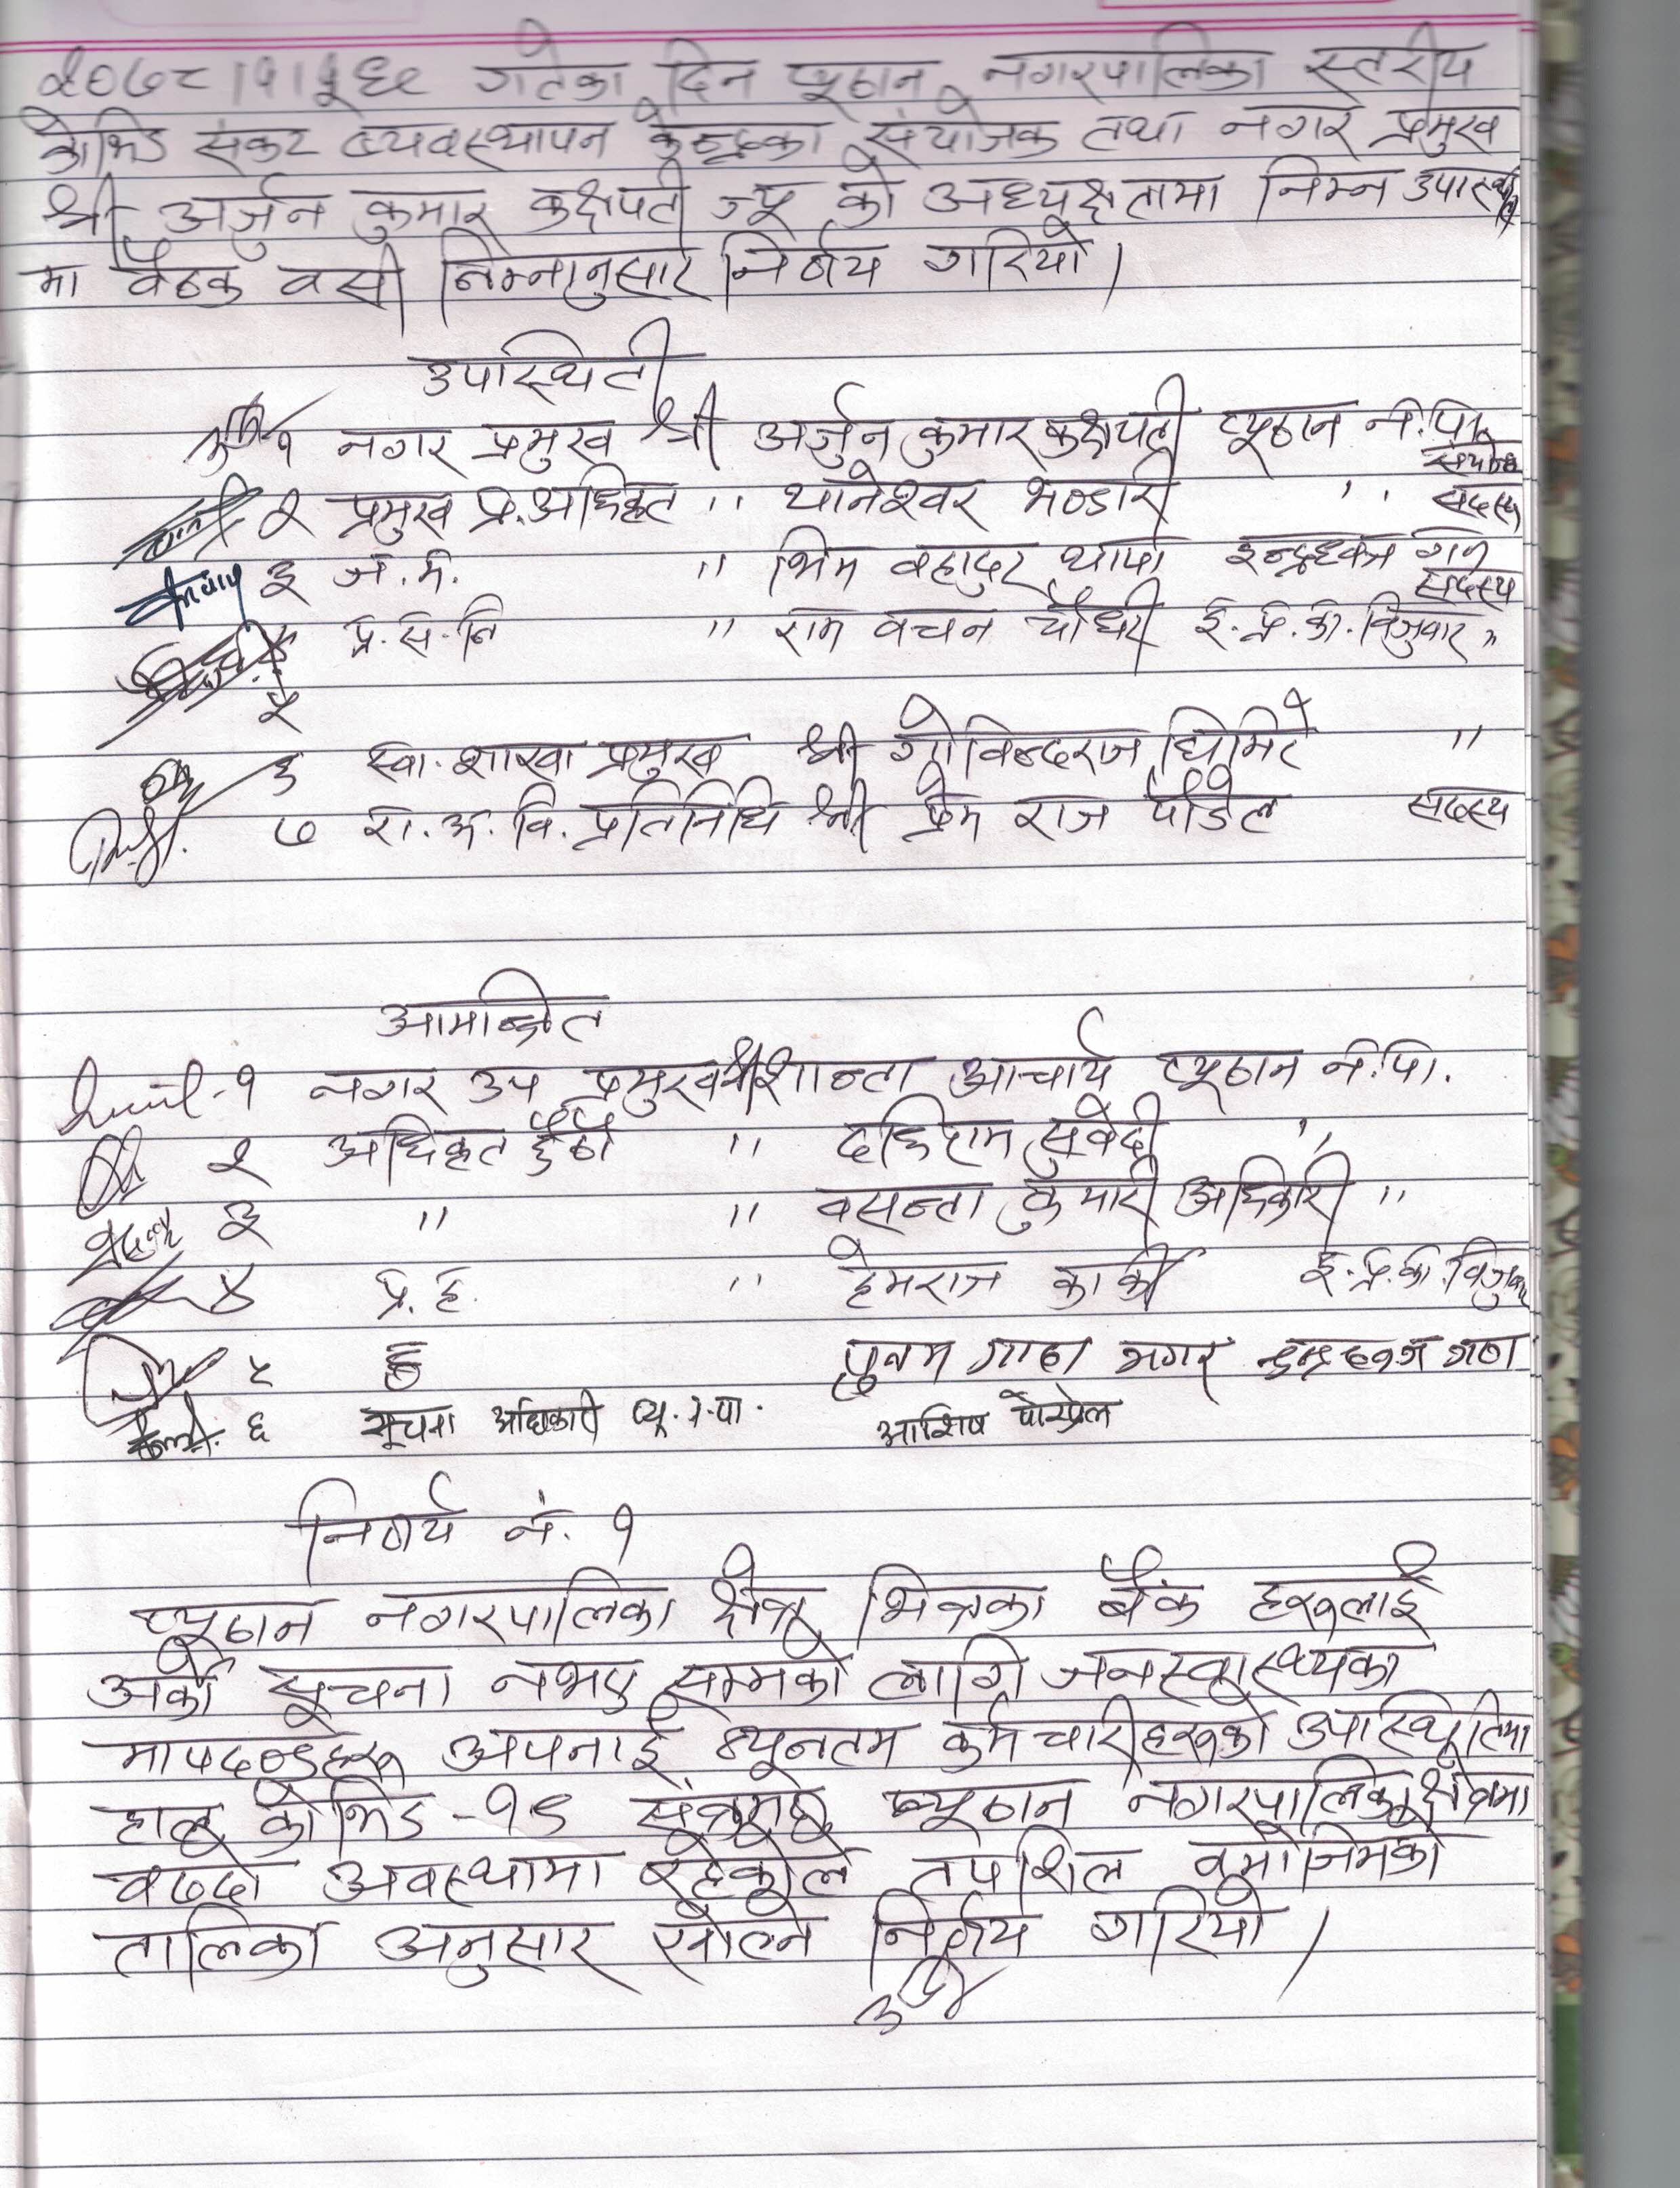 २०७८।१। गतेका दिन प्यूठान नगरपालिका स्तरीय
कोभिड संकट व्यवस्थापन केन्द्रका संयोजक तथा नगर प्रमुख
श्री अर्जुन कुमार कक्षपती ज्यू को अध्यक्षतामा निम्न उपस्थिती
मा बैठक वसी निम्नानुसार निर्णय गरियो।
उपस्थिती
१ नगर प्रमुख श्री अर्जुन कुमार कक्षपती प्यूठान न.पा.
संयोजक
२ प्रमुख प्र. अधिकृत " थानेश्वर भण्डारी " सदस्य
३ " भिम वहादुर थापा इन्द्रध्वज गण
सदस्य
४ प्र.स.नि " राम वचन चौधरी ई.प्र.का.विजुवार "
५
६ स्वा. शाखा प्रमुख श्री गोविन्दराज घिमिरे "
७ रा.अ.वि. प्रतिनिधि श्री प्रेम राज पौडेल सदस्य
आमन्त्रित
१ नगर उप प्रमुख श्री शान्ता आचार्य प्यूठान न.पा.
२ अधिकृत छैठौ " दधिराम सुवेदी "
३ " " वसन्ता कुमारी अधिकारी "
४ प्र.ह. " हेमराज कार्की ई.प्र.का.विजुवार
५ पुनम गाहा मगर इन्द्रध्वज गण
६ सूचना अधिकारी प्यू.न.पा. आशिष पोख्रेल
निर्णय नं. १
प्यूठान नगरपालिका क्षेत्र भित्रका बैंक हरुलाई
अर्को सूचना नभए सम्मको लागि जनस्वास्थ्यका
मापदण्डहरु अपनाई न्यूनतम कर्मचारीहरुको उपस्थितिमा
हाल कोभिड-१९ संक्रमण प्यूठान नगरपालिका क्षेत्रमा
वढ्दो अवस्थामा रहेकोले तपशिल वमोजिमको
तालिका अनुसार खोल्ने निर्णय गरियो।